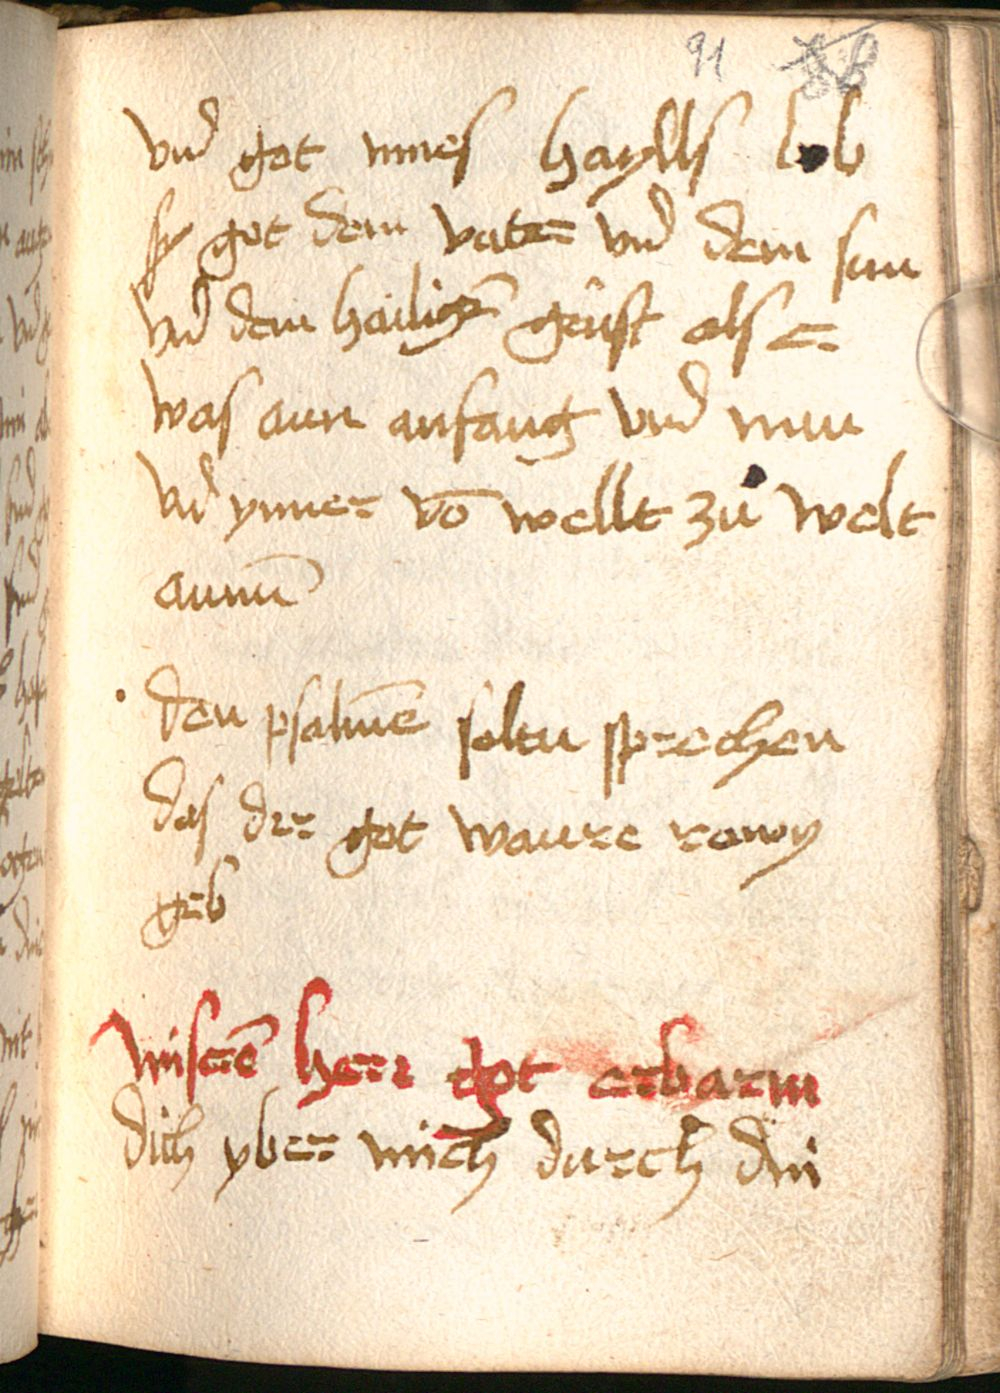 91
vnd got mines hayllß lob
sy got dem vater vnd dem sun
vnd dem hailigē gaist als er
was aun anfang vnd nun
vnd ymer vō wellt zů welt
amē
den psalmē soltu sprechen
das dir got waure rowy
geb
miserē herr got erbarm
dich yber mich durch din